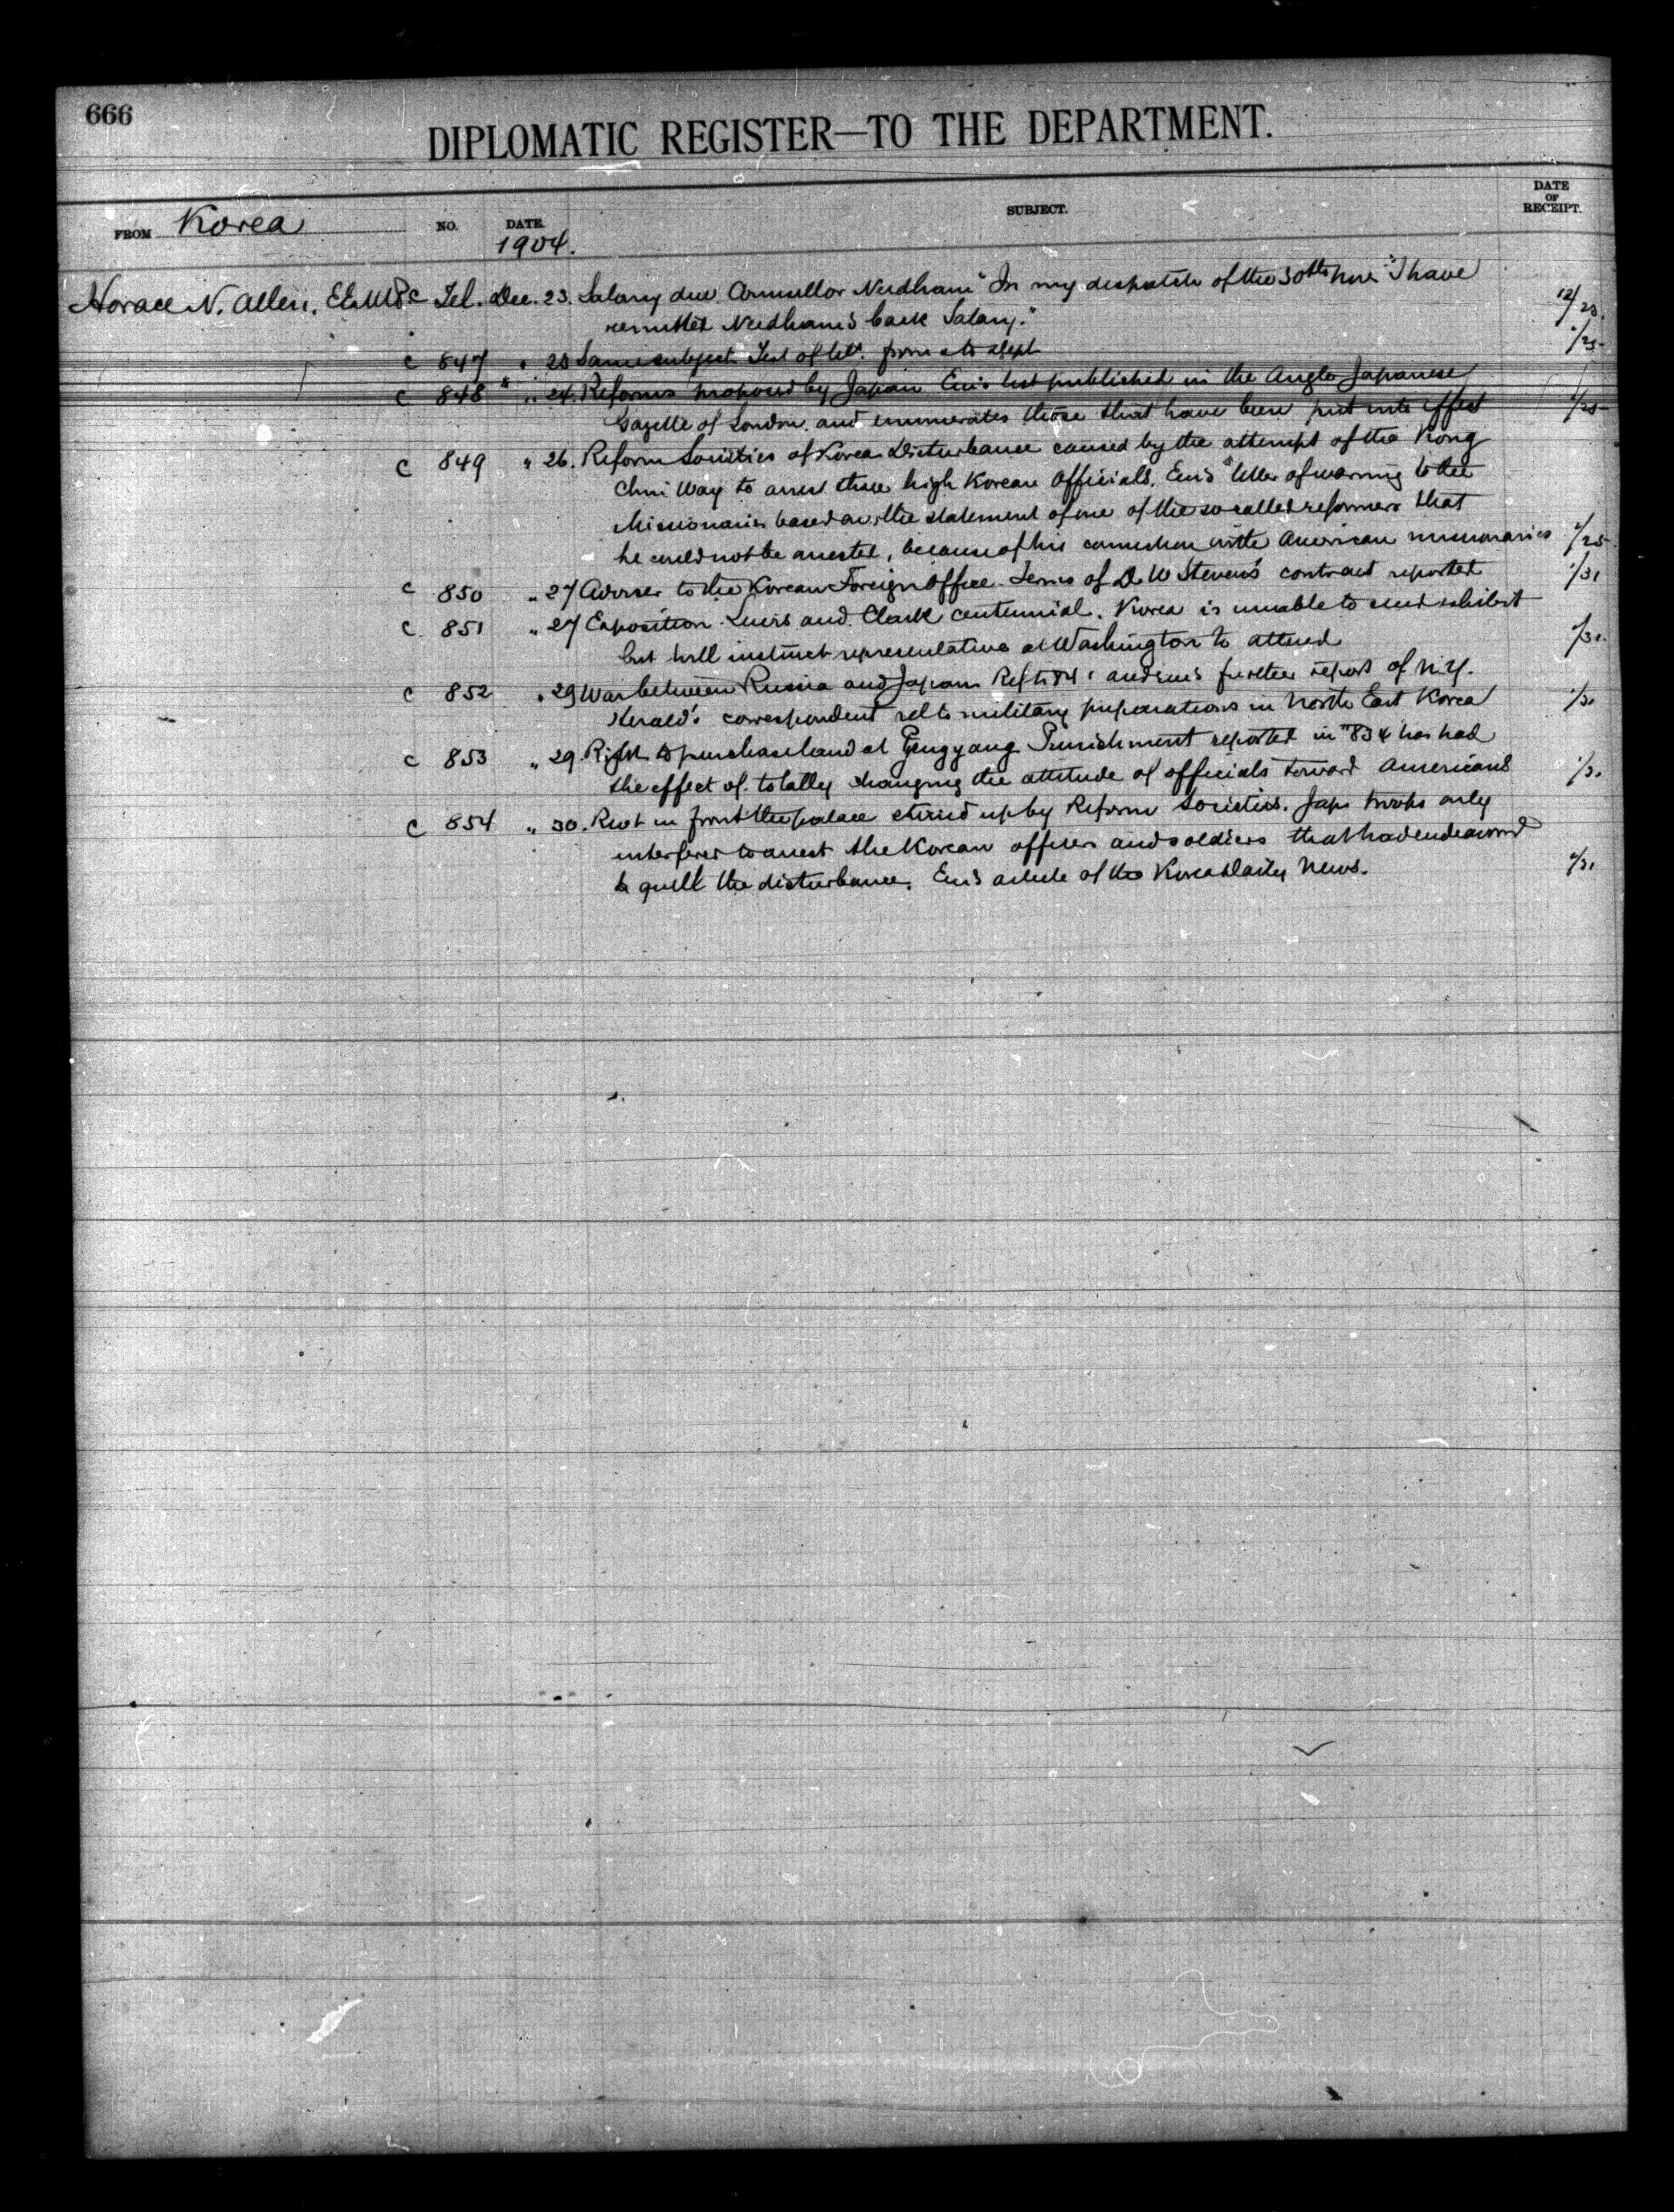 666
DIPLOMATIC REGISTER—TO THE DEPARTMENT.
FROM Korea NO. DATE. SUBJECT. DATE OF RECEIPT.
1904.
Horace N. Allen, E.E.&M.P. c Tel. Dec. 23. Salary due Councillor Needham "In my despatch of the 30th Nov. "I have
remitted Needham's back Salary." 12/23.
c 847 " 23 Same subject. Text of tel. from & to dept 1/25
c 848 " 24. Reforms proposed by Japan Enc's list published in the Anglo Japanese
Gazette of London. and enumerates those that have been put into effect 1/25
c 849 " 26. Reform Societies of Korea Disturbance caused by the attempt of the Kong
Chin Way to arrest three high Korean Officials. Enc's letter of warning to the
Missionaries based on the statement of one of the so called reformers that
he could not be arrested, because of his connection with American missionaries 1/25
c 850 " 27 Adviser to the Korean Foreign Office. Terms of D. W Stevens' contract reported 1/31
c 851 " 27 Exposition. Lewis and Clark centennial. Korea is unable to send exhibit
but will instruct representative at Washington to attend 1/31.
c 852 " 29 War between Russia and Japan. Refs to 841 and encs further report of N.Y.
Herald's correspondent rel to military preparations in North East Korea 1/31
c 853 " 29. Right to purchase land at Pengyang Punishment reported in "834 has had
the effect of totally changing the attitude of officials toward Americans 1/31
c 854 " 30. Riot in front the palace stirred up by Reform Societies. Japs troops only
interfered to arrest the Korean officers and soldiers that had endeavored
to quell the disturbance. Enc's article of the Korea Daily News. 1/31